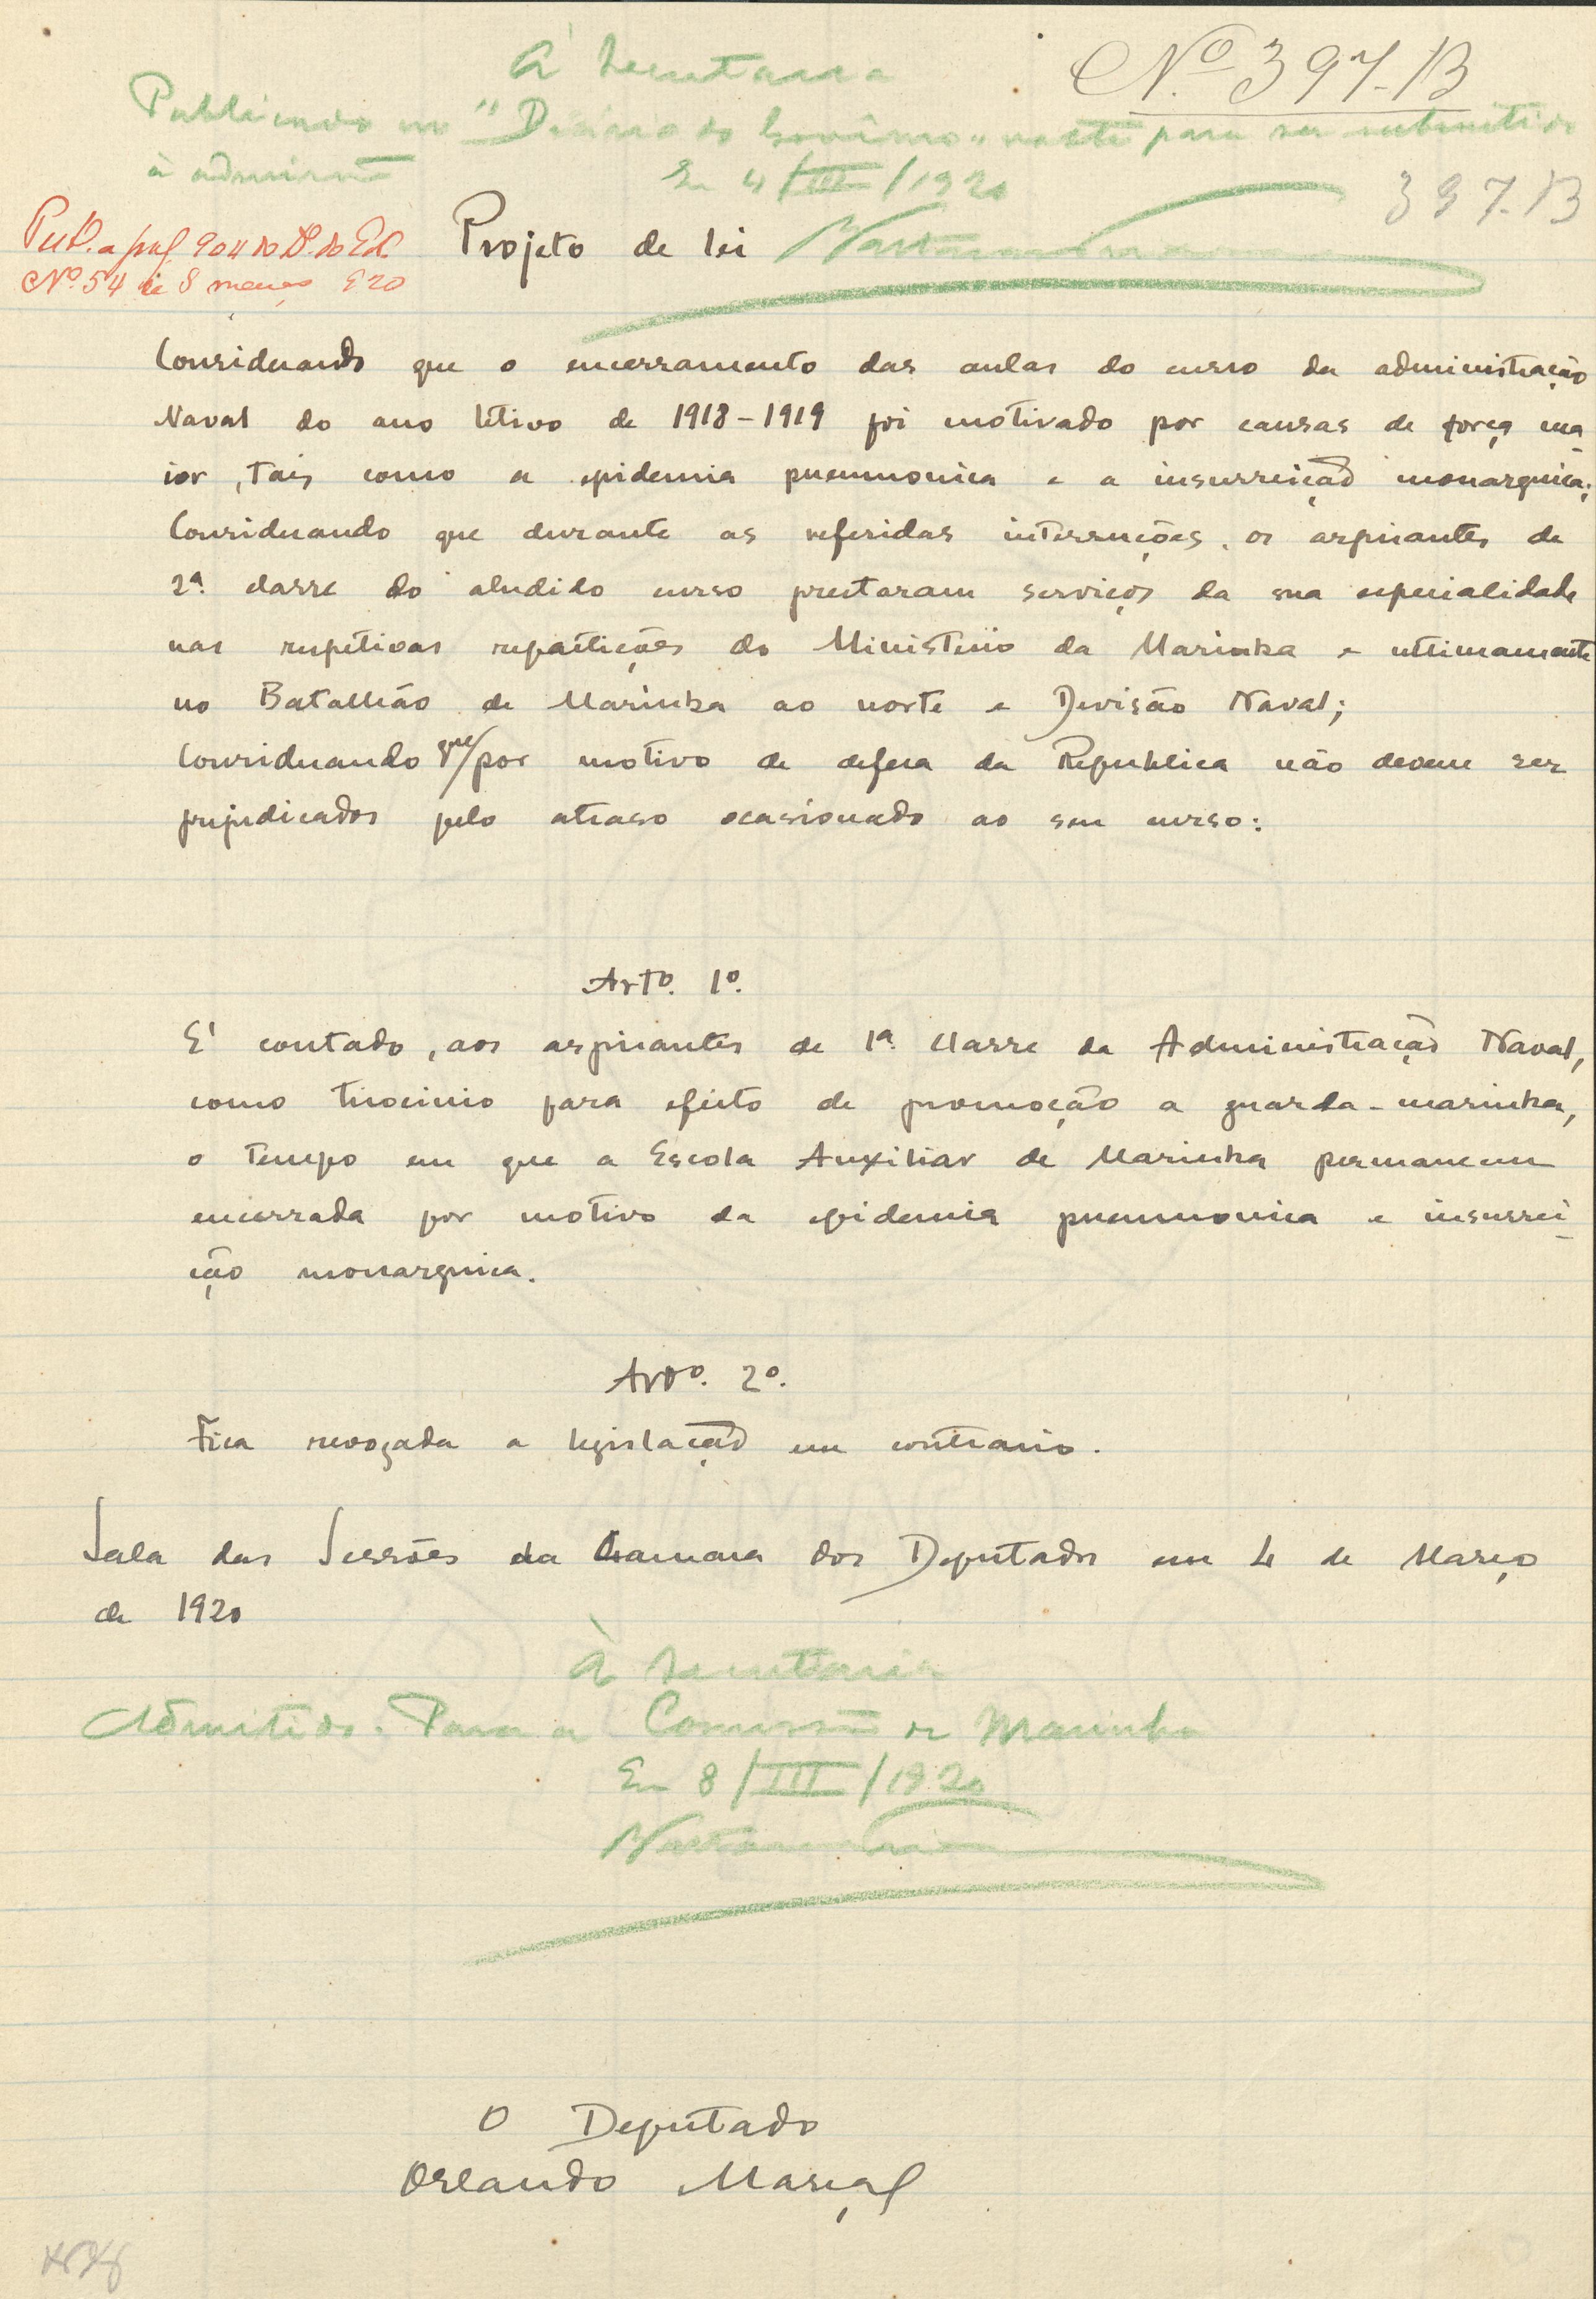 À Secretaria
Nº 397-B
Publicado no "Diário do Govêrno" volte para ser submetido
à admissão
Em 4/III/1920
397-B
Pub. a pag. 904 do D. do
Nº 54 de 8 março 920
Projeto de lei
Considerando que o encerramento das aulas do curso da administração
Naval do ano letivo de 1918-1919 foi motivado por causas de força ma
ior, tais como a epidemia pneumonica e a insurreição monarquica;
Considerando que durante as referidas interrupções, os aspirantes de
2ª classe do aludido curso prestaram serviços da sua especialidade
nas respetivas repartições do Ministerio da Marinha e ultimamente
no Batalhão de Marinha ao norte e Devisão Naval;
Considerando que/por motivo de defesa da Republica não devem ser
prejudicados pelo atraso ocasionado ao seu curso:
Artº. 1º.
E' contado, aos aspirantes de 1ª classe da Administração Naval,
como tirocinio para efeito de promoção a guarda-marinha,
o tempo em que a Escola Auxiliar de Marinha permaneceu
encerrada por motivo da epidemia pneumonica e insurrei
ção monarquica.
Artº. 2º.
Fica revogada a legislação em contrario.
Sala das Sessões da Camara dos Deputados em 4 de Março
de 1920
À Secretaria
Admitido. Para a Comissão de Marinha
Em 8/III/1920
O Deputado
Orlando Marçal